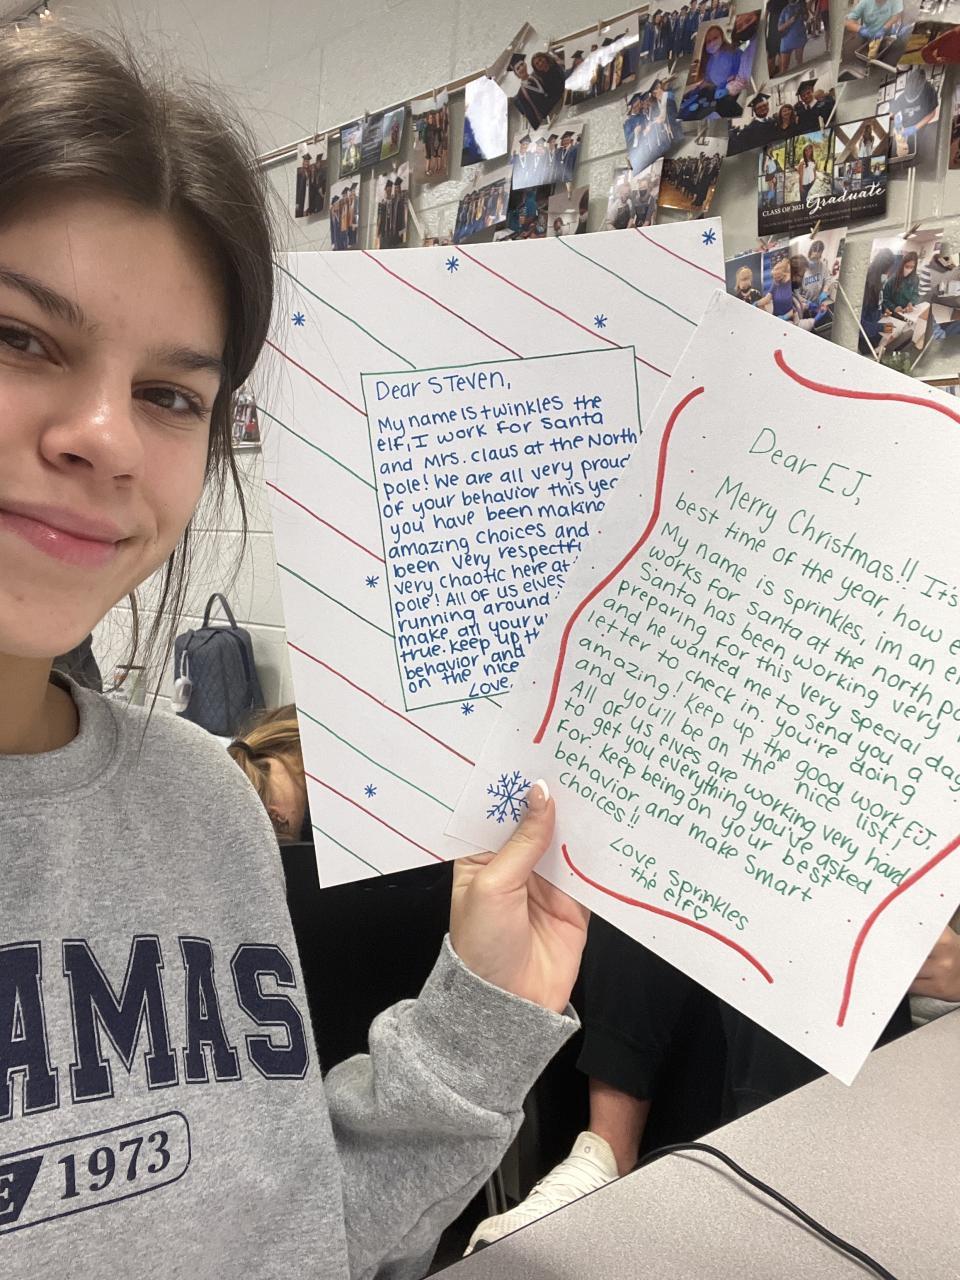 CLASS OF 2021 Graduate
Dear Steven,
My name is twinkles the
elf, I work for Santa
and Mrs. Claus at the North
pole! We are all very proud
of your behavior this
you have been making
amazing choices and
been very
very chaotic here at
pole! All of us elves
running around
make all your
true. Keep up
behavior and
on the nice
Love,
Dear EJ,
Merry Christmas!! It's
best time of the year, how
My name is sprinkles, im an
works for santa at the north
Santa has been working very
preparing for this very special day
and he wanted me to send you a
letter to check in. you're doing
amazing! Keep up the good work EJ,
and you'll be on the nice list!
All of us elves are working very hard
to get you everything you've asked
for. Keep being on your best
behavior and make smart
choices!!
Love, Sprinkles
the elf♡
AMAS
E 1973